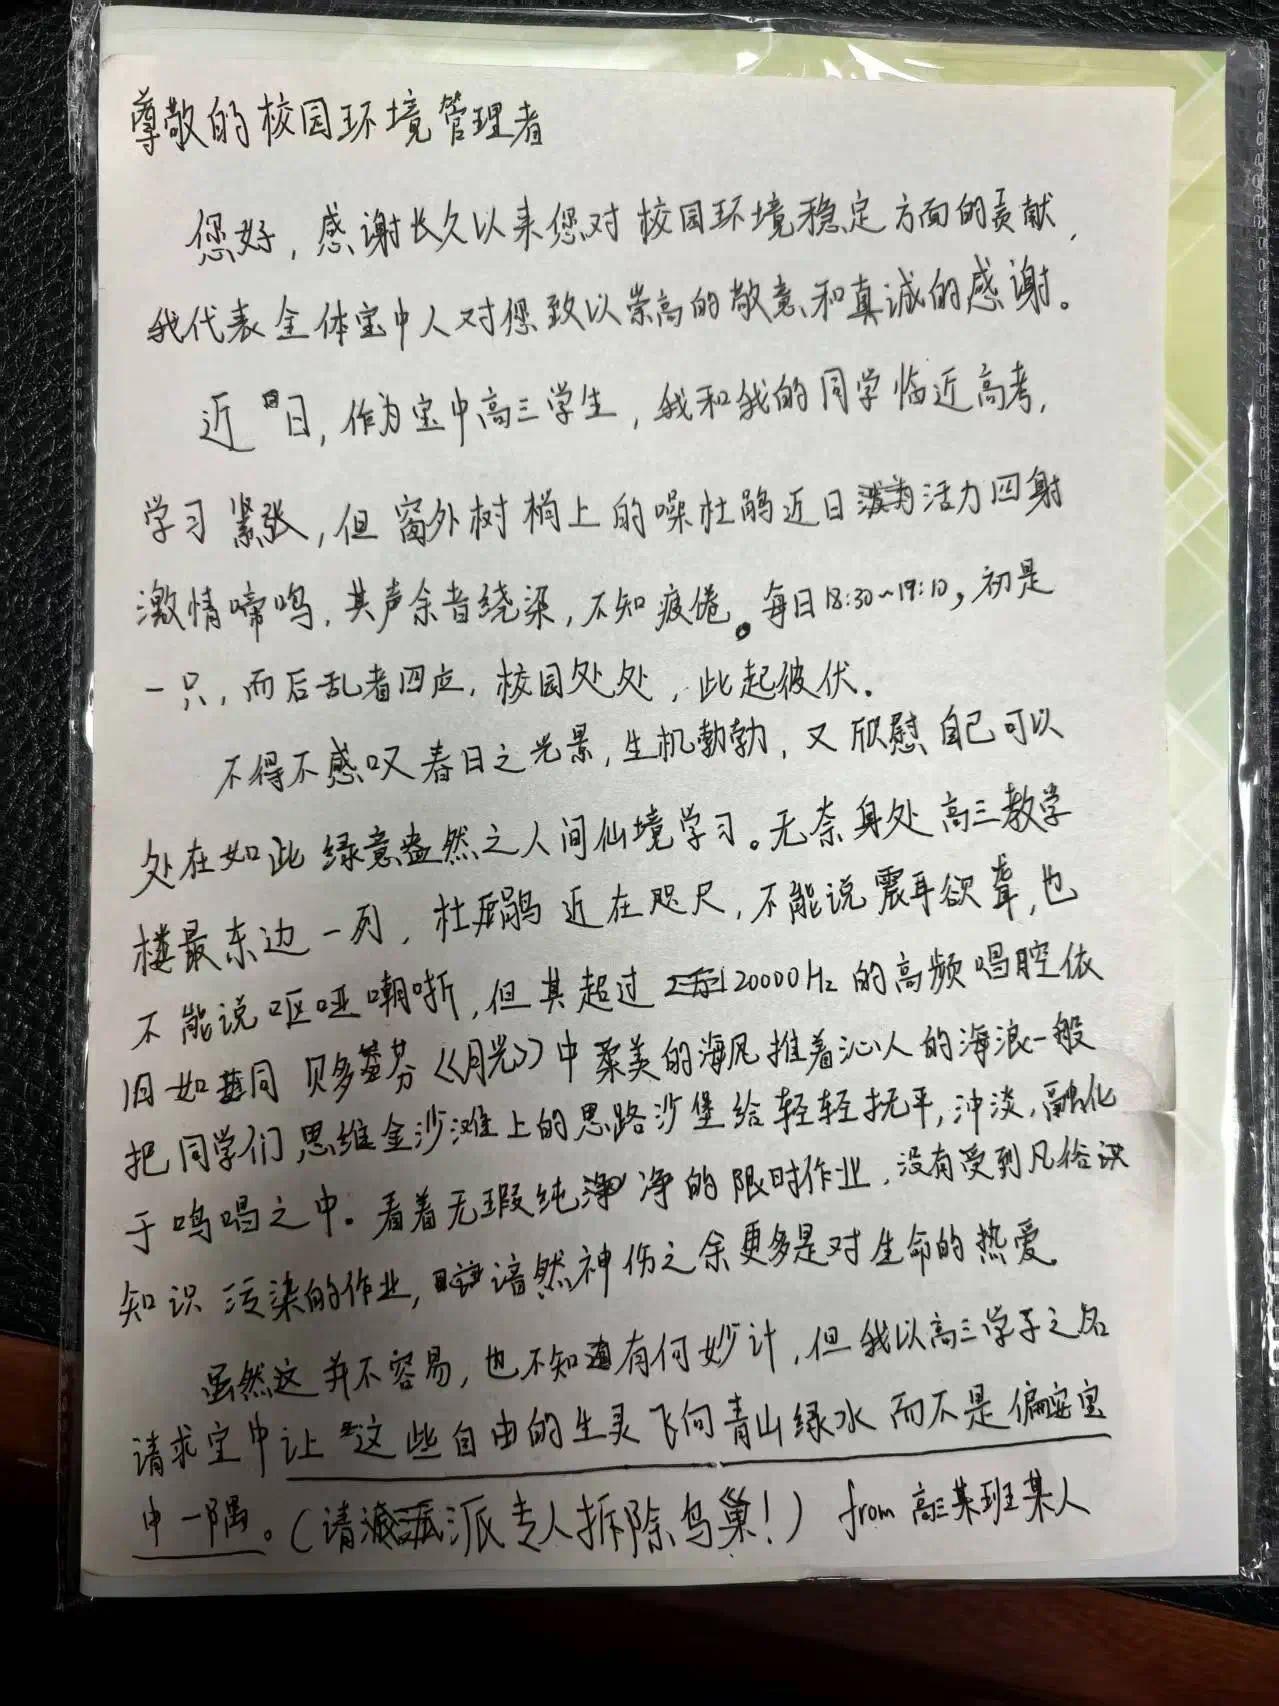 尊敬的校园环境管理者
您好，感谢长久以来您对校园环境稳定方面的贡献，
我代表全体宝中人对您致以崇高的敬意和真诚的感谢。
近日，作为宝中高三学生，我和我的同学临近高考，
学习紧张，但窗外树梢上的噪杜鹃近日活力四射
激情啼鸣，其声余音绕梁，不知疲倦。每日18:30~19:10，初是
一只，而后乱者四应，校园处处，此起彼伏.
不得不感叹春日之光景，生机勃勃，又欣慰自己可以
处在如此绿意盎然之人间仙境学习。无奈身处高三教学
楼最东边一列，杜鹃近在咫尺，不能说震耳欲聋，也
不能说呕哑嘲哳，但其超过20000Hz的高频唱腔依
旧如同贝多芬《月光》中柔美的海风推着沁人的海浪一般
把同学们思维金沙滩上的思路沙堡给轻轻抚平，冲淡，融化
于鸣唱之中。看着无瑕纯净的限时作业，没有受到凡俗识
知识污染的作业，谙然神伤之余更多是对生命的热爱。
虽然这并不容易，也不知有何妙计，但我以高三学子之名
请求宝中让这些自由的生灵飞向青山绿水而不是偏安宝
中一隅。（请派专人拆除鸟巢！） from 高三某班某人